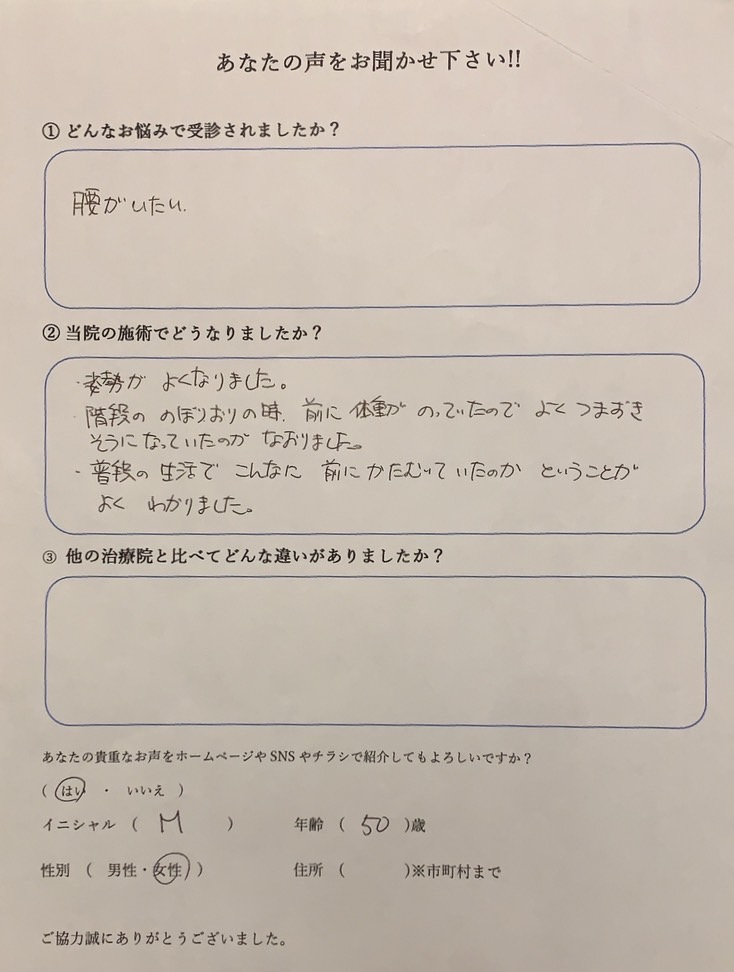 あなたの声をお聞かせ下さい!!
① どんなお悩みで受診されましたか？
腰がいたい.
② 当院の施術でどうなりましたか？
・姿勢が よくなりました。
・階段の のぼりおりの時、前に 体重が のっていたので よく つまずき
そうになっていたのが なおりました。
・普段の 生活で こんなに 前に かたむいていたのか ということが
よく わかりました。
③ 他の治療院と比べてどんな違いがありましたか？
あなたの貴重なお声をホームページや SNS やチラシで紹介してもよろしいですか？
( はい ・ いいえ )
イニシャル ( M ) 年齢 ( 50 )歳
性別 ( 男性・女性 ) 住所 ( )※市町村まで
ご協力誠にありがとうございました。